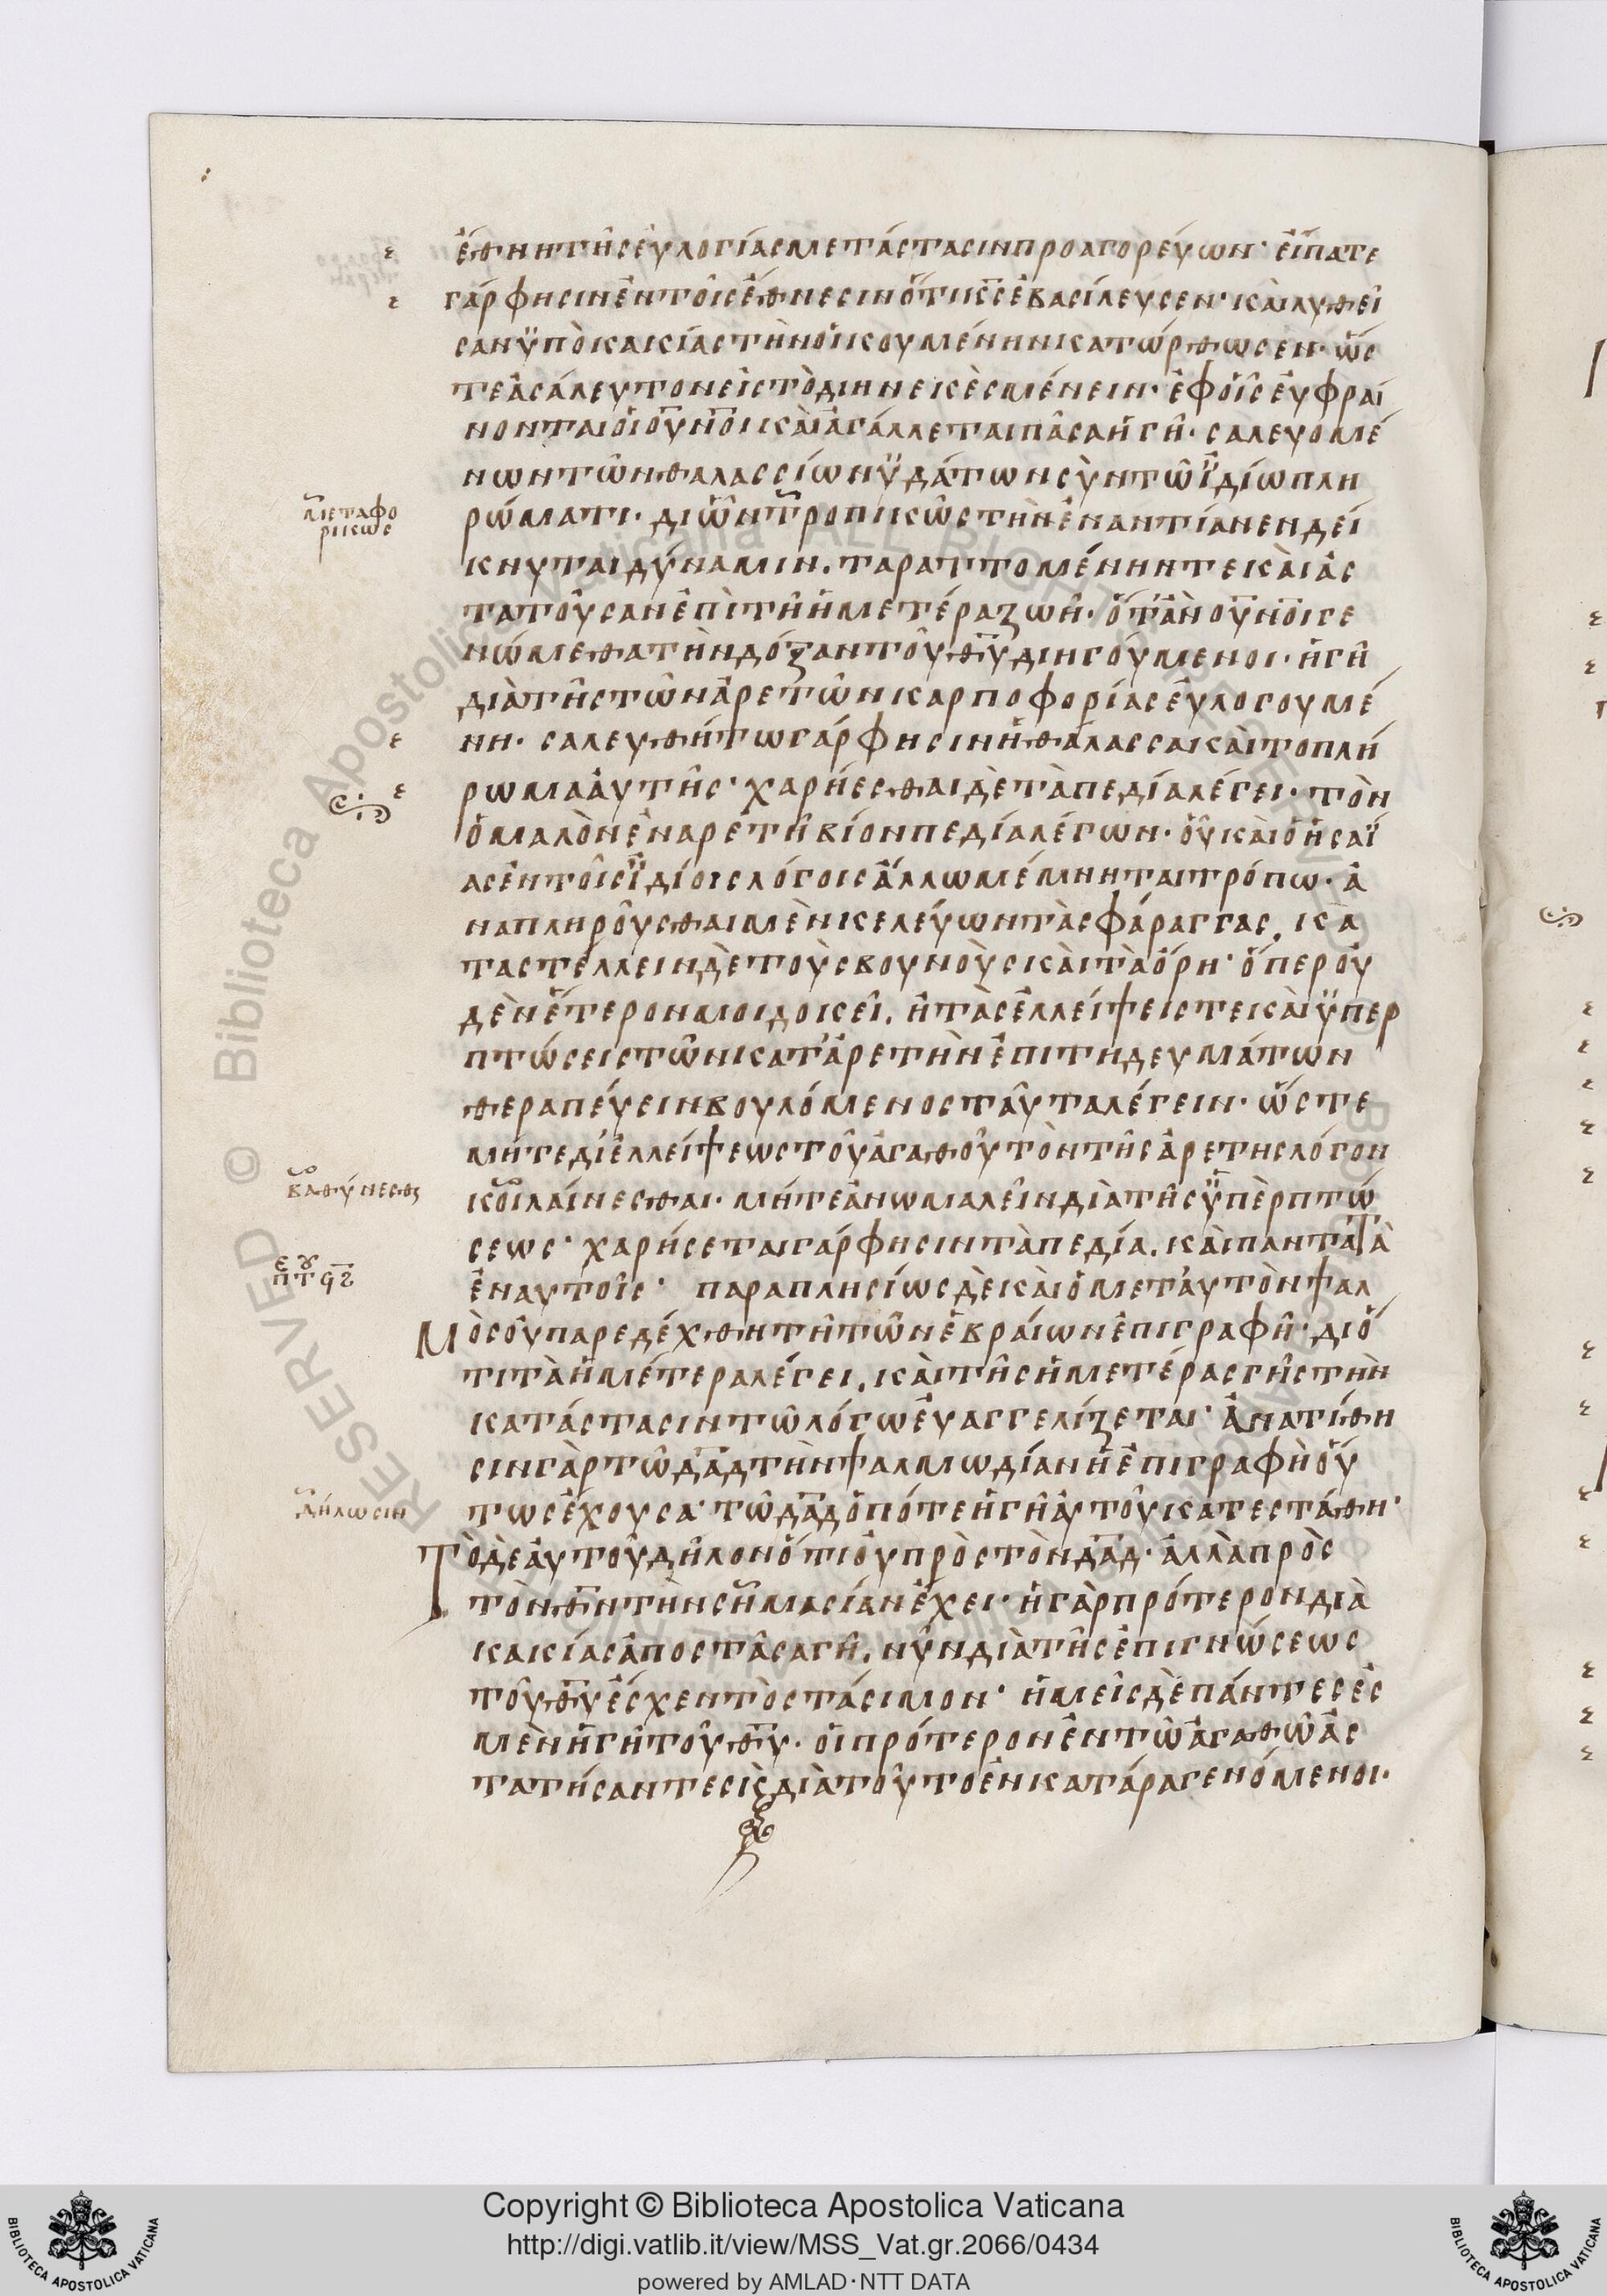 ἔθνη τῆς εὐλογίας μετάστασιν προαγορεύων· εἴπατε
γάρ φησιν ἐν τοῖς ἔθνεσιν ὅτι κς ἐβασίλευσεν· καὶ λυθεῖ
σαν ὑπὸ κακίας τὴν οἰκουμένην κατώρθωσεν· ὥς
τε ἀσάλευτον εἰς τὸ διηνεκὲς μένειν· ἐφ οἷς εὐφραί
νονται οἱ ουνοι καὶ ἀγάλλεται πᾶσα ἡ γῆ· σαλευομέ
νων τῶν θαλασσίων ὑδάτων σὺν τῶ ἰδίω πλη
μεταφο
ρικως
ρώματι· δι ὧν τροπικῶς τὴν ἐναντίαν ενδεί
κνυται δύναμιν. ταραττομένην τε καὶ ἀς
τατοῦσαν ἐπὶ τῆ ἡμετέρα ζωῆ· ὅταν ουνοι γε
νώμεθα τὴν δόξαν τοῦ θυ διηγούμενοι· ἡ γῆ
διὰ τῆς τῶν ἀρετῶν καρποφορίας εὐλογουμέ
νη· σαλευθήτω γάρ φησιν ἡ θάλασσα καὶ το πλή
ρωμα αὐτῆς· χαρήεσθαι δὲ τὰ πεδία λέγει· τὸν
ὁμαλὸν ἐν ἀρετῆ βίον πεδία λέγων· οὗ καὶ ὁ ἡσαΐ
ας ἐν τοῖς ἰδίοις λόγοις ἄλλω μέμνηται τρόπω· ἀ
ναπληροῦσθαι μὲν κελεύων τὰς φάραγγας, κα
ταστέλλειν δὲ τοὺς βουνοὺς καὶ τὰ ὄρη· ὅπερ οὐ
δὲν ἕτερον μοι δοκεῖ, ἢ τὰς ἐλλείψεις τε καὶ ὑπερ
πτώσεις τῶν κατ ἀρετὴν ἐπιτηδευμάτων
θεραπεύειν βουλόμενος ταῦτα λέγειν· ὥστε
μήτε δι ἐλλείψεως τοῦ ἀγαθοῦ τὸν τῆς ἀρετης λόγον
βαθύνεσθαι
κοιλαίνεσθαι· μήτε ἀνωμαλεῖν διὰ τῆς ὑπὲρπτώ
σεως· χαρήσεται γάρ φησιν τὰ πεδία, καὶ παντα τὰ
ἐν αυτοῖς· παραπλησίως δὲ καὶ ὁ μετ αὐτὸν ψαλ
μὸς οὐ παρεδέχθη τῆ τῶν ἑβραίων ἐπιγραφῆ· διό
τι τὰ ἡμέτερα λέγει, καὶ τῆς ἡμετέρας γῆς τὴν
κατάστασιν τῶ λόγω εὐαγγελίζεται· ἀνατίθη
σιν γὰρ τῶ δαδ τὴν ψαλμωδίαν ἡ ἐπιγραφὴ οὕ
δήλωσιν
τως ἔχουσα· τῶ δαδ ὁπότε ἡ γῆ αὐτοῦ κατεστάθη·
Τὸ δε αὐτοῦ δῆλον ὅτι οὐ πρὸς τὸν δαδ· ἀλλὰ πρὸς
τὸν θν τὴν σημασίαν ἔχει· ἡ γὰρ πρότερον διὰ
κακίας ἀποστᾶσα γῆ, νῦν διὰ τῆς ἐπιγνώσεως
τοῦ θυ ἔσχεν τὸ στάσιμον· ἡμεῖς δὲ πάντες ἐς
μὲν ἡ γῆ τοῦ θυ· οἱ πρότερον ἐν τῶ ἀγαθῶ ἀς
τατήσαντες κὶ διὰ τοῦτο ἐν κατάρα γενόμενοι·
Copyright © Biblioteca Apostolica Vaticana
http://digi.vatlib.it/view/MSS_Vat.gr.2066/0434
powered by AMLAD·NTT DATA